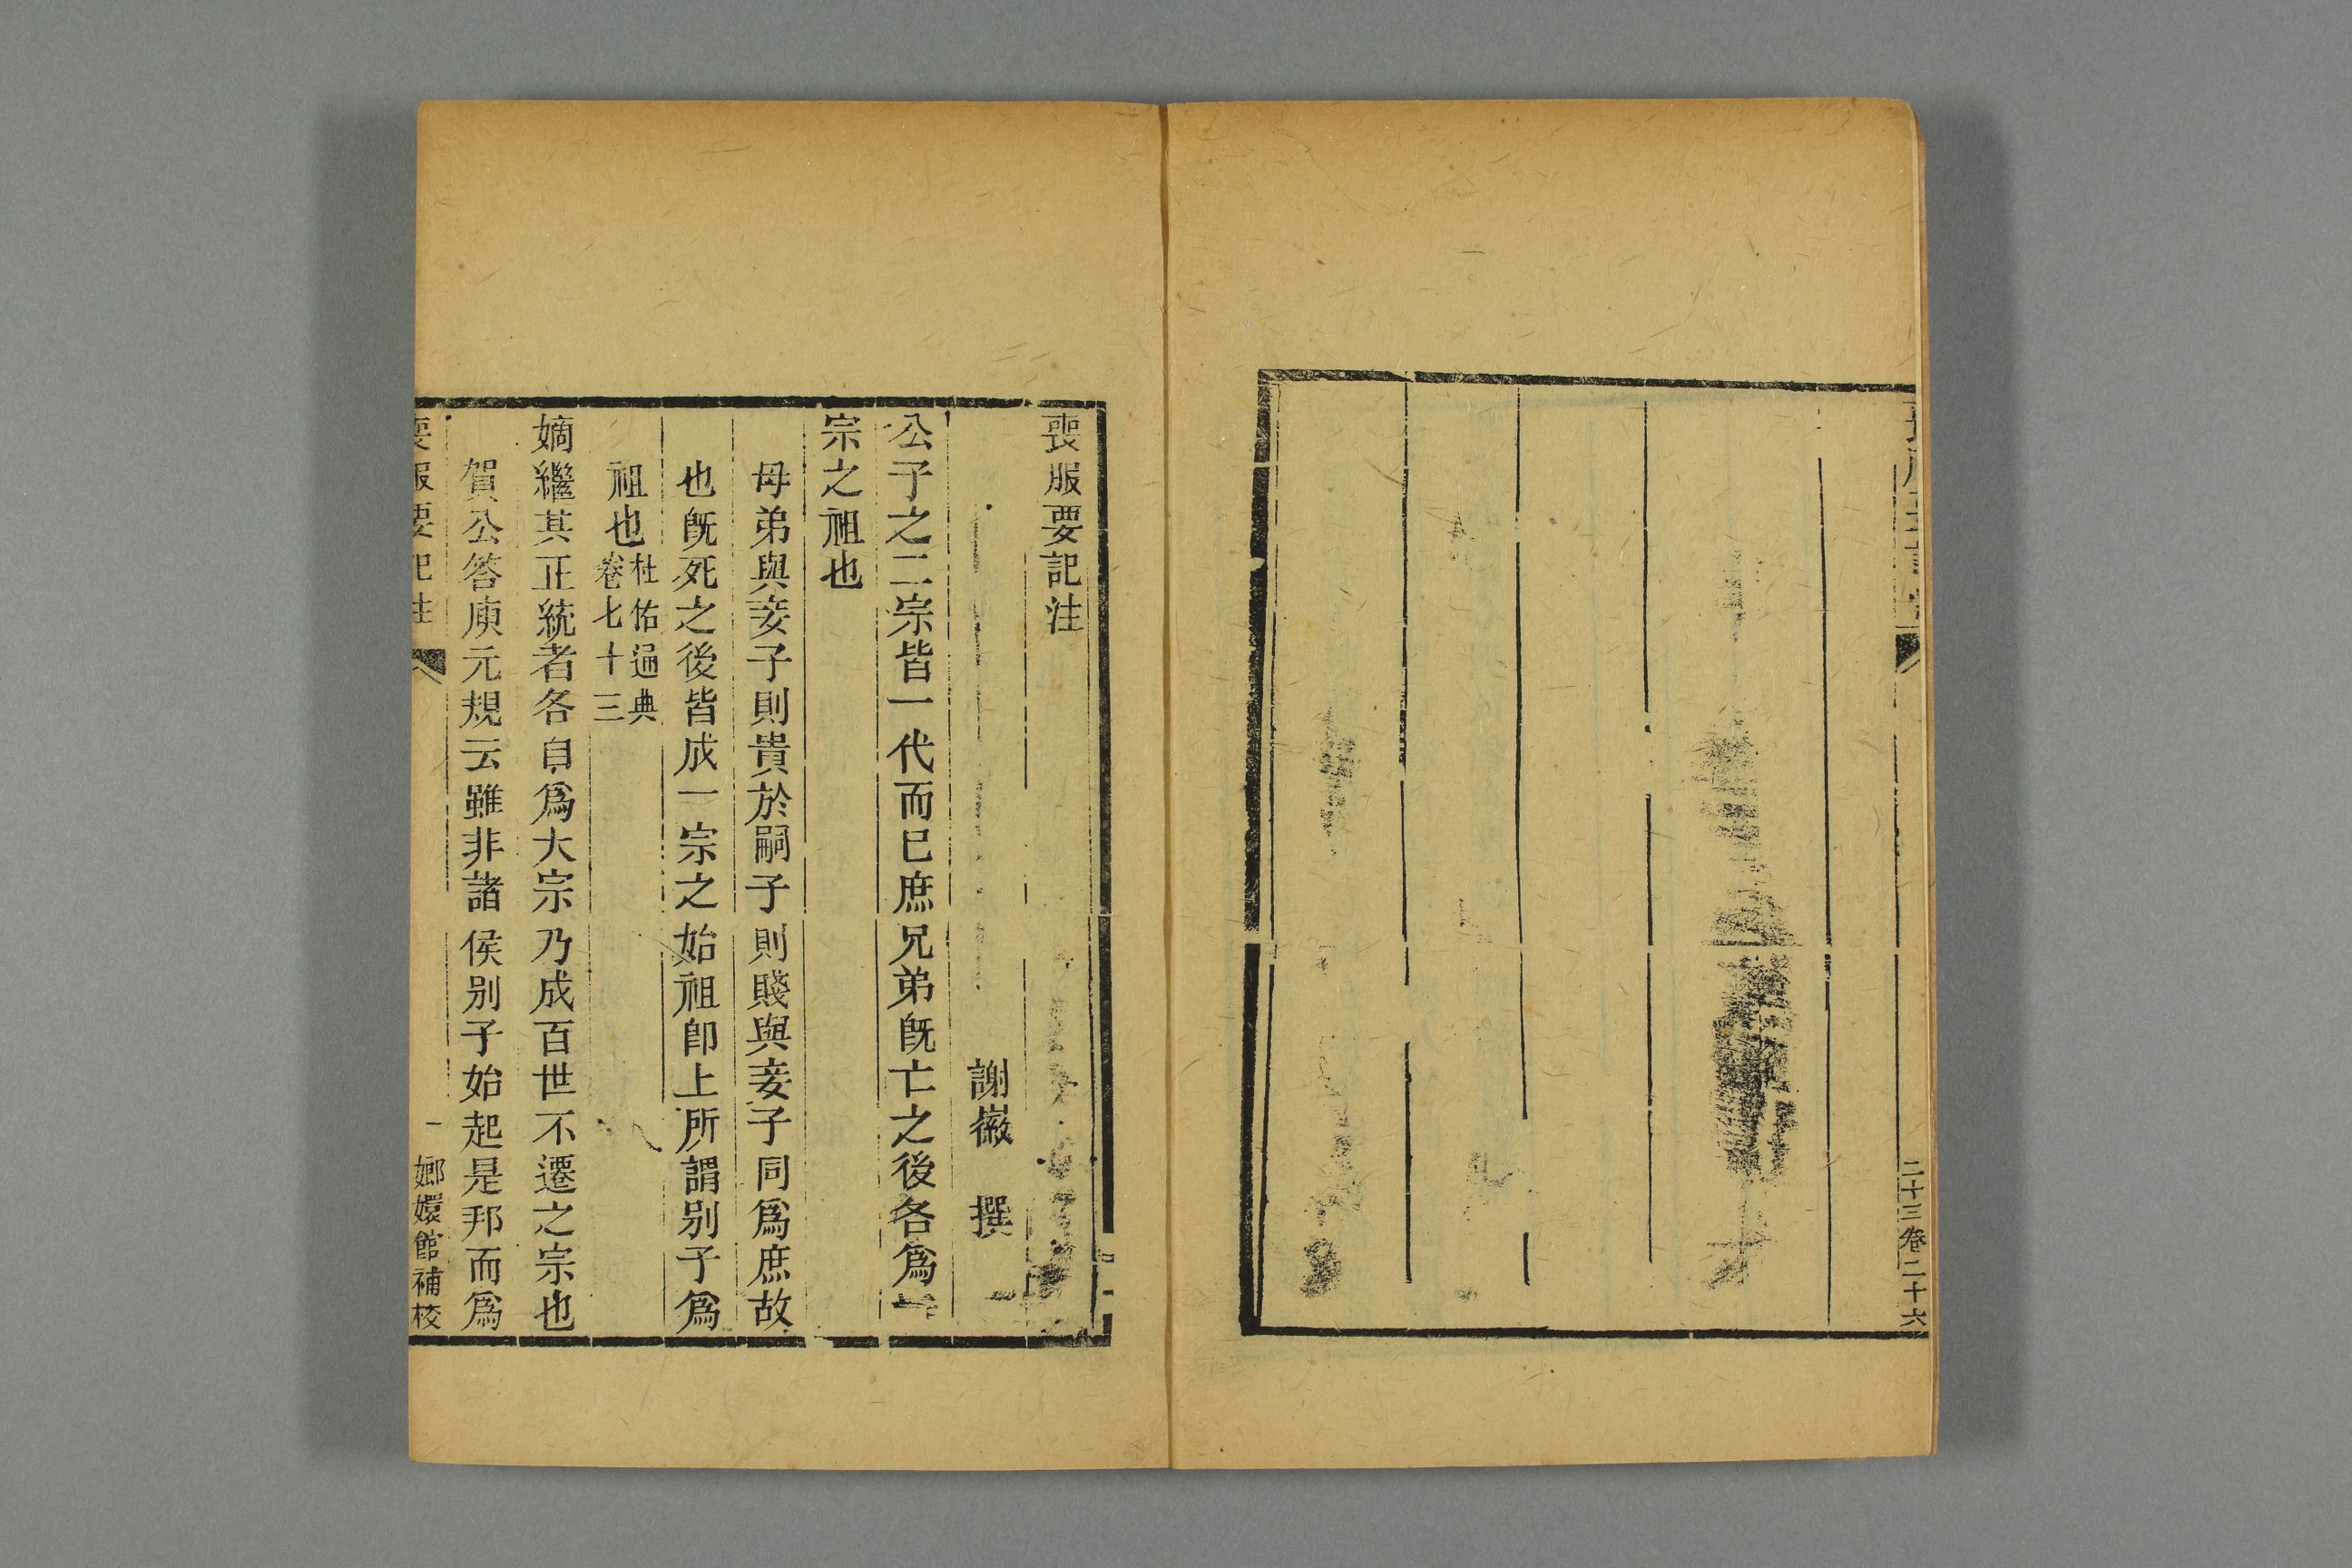 二十三卷二十六
喪服要記注
謝徽　撰
公子之二宗皆一代而已庶兄弟旣亡之後各爲
宗之祖也
母弟與妾子則貴於嗣子則賤與妾子同爲庶故
也旣死之後皆成一宗之始祖卽上所謂别子爲
祖也杜佑通典卷七十三
嫡繼其正統者各自爲大宗乃成百世不遷之宗也
賀公答庾元規云雖非諸侯别子始起是邦而爲
喪服要記注　一　嫏嬛館補校